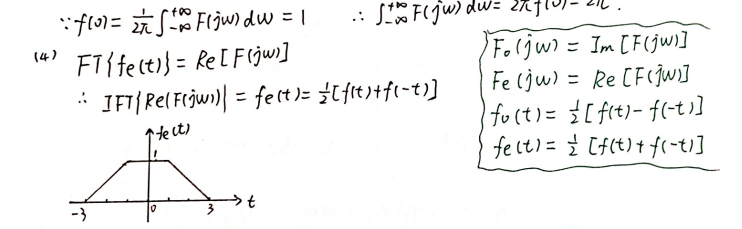 ∵ f(0) = 1/2π ∫_{-∞}^{+∞} F(jw) dw = 1 ∴ ∫_{-∞}^{+∞} F(jw) dw = 2πf(0) = 2π.
(4) FT{fe(t)} = Re[F(jw)]
∴ IFT{Re(F(jw))} = fe(t) = 1/2[f(t)+f(-t)]
fe(t)
1
-3 0 3 t
Fo(jw) = Im[F(jw)]
Fe(jw) = Re[F(jw)]
fo(t) = 1/2[f(t)-f(-t)]
fe(t) = 1/2[f(t)+f(-t)]